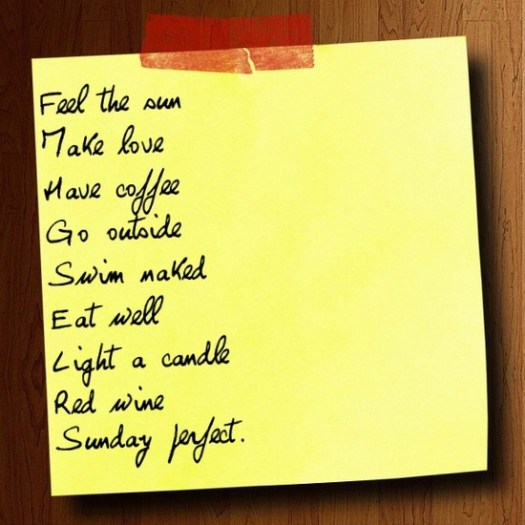 Feel the sun
Make love
Have coffee
Go outside
Swim naked
Eat well
Light a candle
Red wine
Sunday perfect.